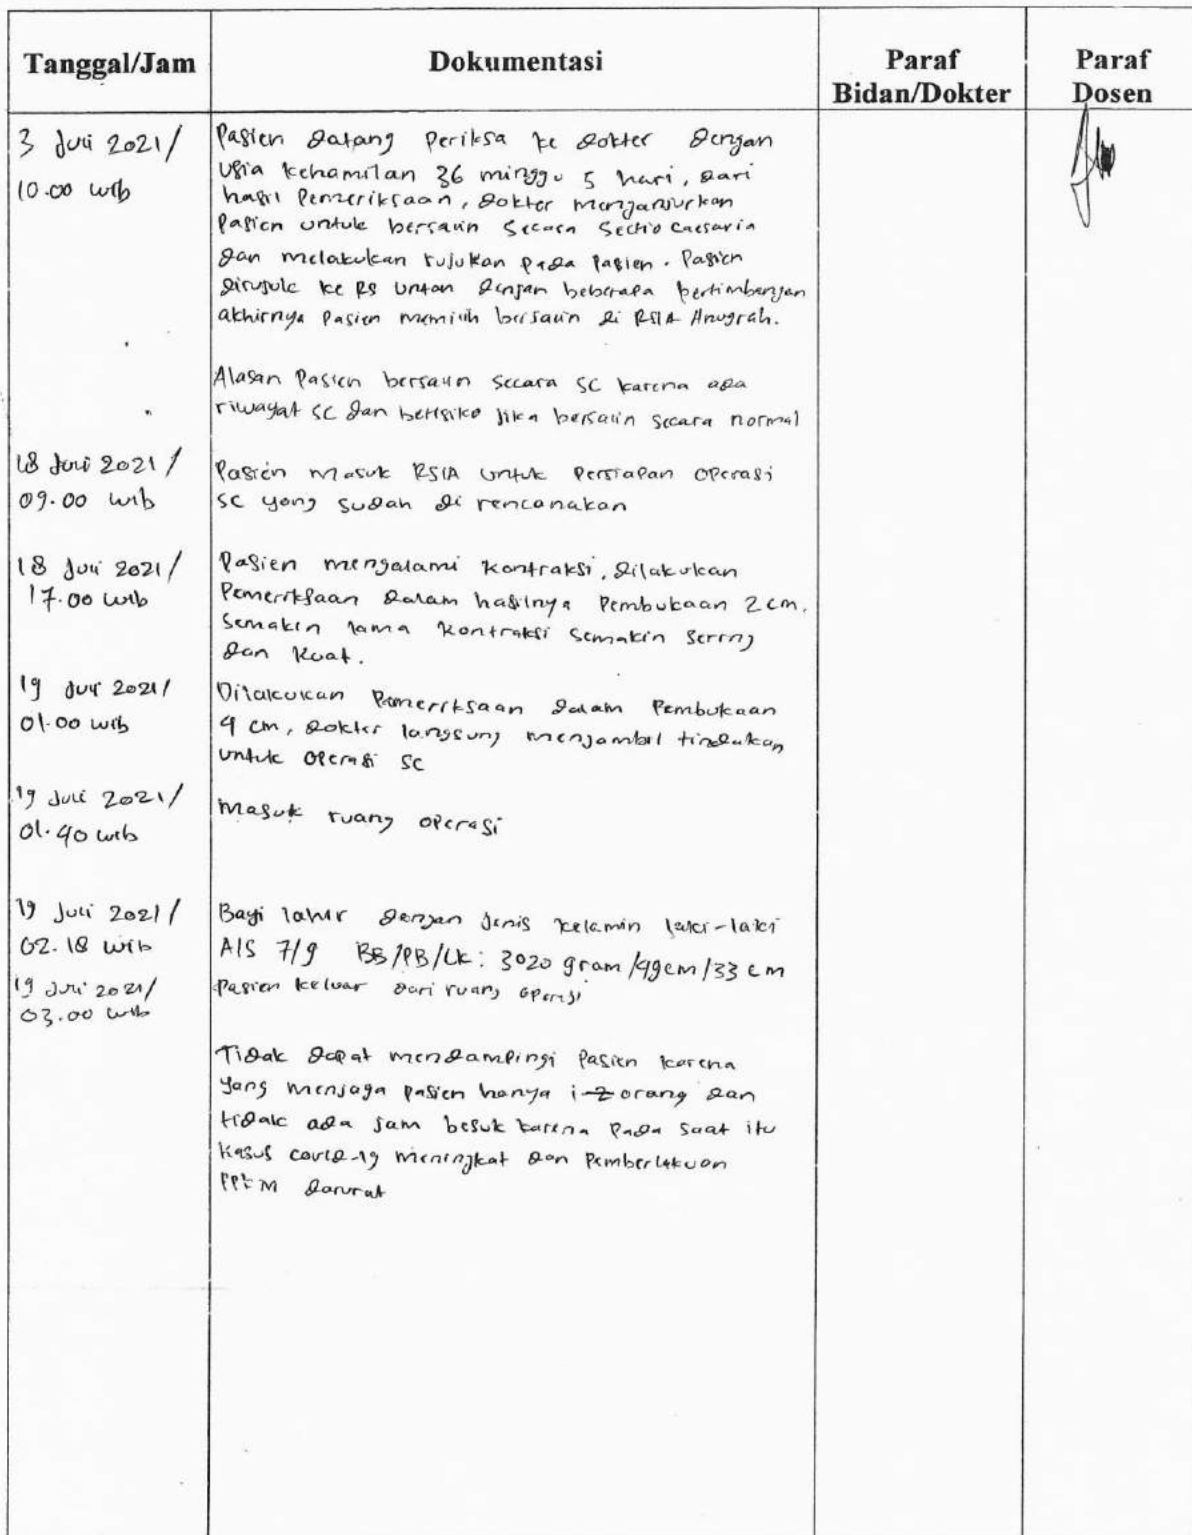 Tanggal/Jam
Dokumentasi
Paraf
Bidan/Dokter
Paraf
Dosen
3 Juli 2021/
10.00 wib
Pasien datang periksa ke dokter dengan
usia kehamilan 36 minggu 5 hari, dari
hasil Pemeriksaan, dokter menganjurkan
Pasien untuk bersalin secara Sectio caesaria
dan melakukan rujukan pada Pasien. Pasien
dirujuk ke RS Untan dengan beberapa pertimbangan
akhirnya Pasien memilih bersalin di RSIA Anugrah.
Alasan Pasien bersalin secara SC karena ada
riwayat SC dan berisiko jika bersalin secara normal
18 Juli 2021/
09.00 wib
Pasien masuk RSIA untuk Persiapan operasi
SC yang sudah di rencanakan
18 Juli 2021/
17.00 wib
Pasien mengalami kontraksi, dilakukan
Pemeriksaan dalam hasilnya Pembukaan 2 cm.
Semakin lama kontraksi semakin sering
dan kuat.
19 Juli 2021/
01.00 wib
Dilakukan Pemeriksaan dalam Pembukaan
4 cm, dokter langsung mengambil tindakan
untuk operasi SC
19 Juli 2021/
01.40 wib
Masuk ruang operasi
19 Juli 2021/
02.18 wib
Bayi lahir dengan jenis kelamin laki-laki
A/S 7/9 BB/PB/LK: 3020 gram/49cm/33 cm
19 Juli 2021/
03.00 wib
Pasien keluar dari ruang operasi
Tidak dapat mendampingi Pasien karena
yang menjaga pasien hanya 1-2 orang dan
tidak ada jam besuk karena pada saat itu
kasus covid-19 meningkat dan Pemberlakuan
PPKM darurat